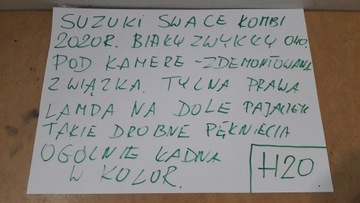 SUZUKI SWACE KOMBI
2020R. BIAŁY ZWYKŁY 040.
POD KAMERE - ZDEMONTOWANA
Z WIĄZKA. TYLNA PRAWA
LAMPA NA DOLE PAJACZEK
TAKIE DROBNE PĘKNIĘCIA
OGÓLNIE ŁADNA
W KOLOR.
H20